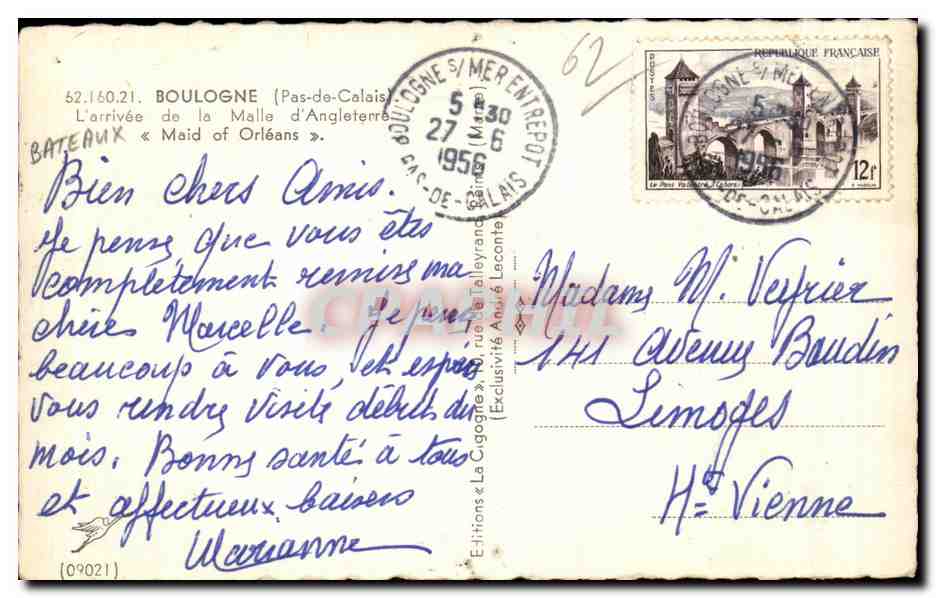 62.160.21. BOULOGNE (Pas-de-Calais)
L'arrivée de la Malle d'Angleterre
« Maid of Orléans ».
BATEAUX
Bien chers Amis.
Je pense que vous êtes
complètement remise ma
chère Marcelle. Je pense
beaucoup à vous, et espère
vous rendre visite début du
mois. Bonne santé à tous
et affectueux baisers
Marianne
(09021)
BOULOGNE S/ MER ENTREPOT
5 30
27 - 6
1956
PAS-DE-CALAIS
Editions « La Cigogne », rue de Talleyrand, Reims (Marne)
(Exclusivité André Leconte)
62
RÉPUBLIQUE FRANÇAISE
POSTES
BOULOGNE S/ MER
5
1956
DE-CALAIS
12F
Le Pont Valentré (Cahors)
CPAPHIL
Madame M. Veyrier
141 Avenue Baudin
Limoges
Hte Vienne